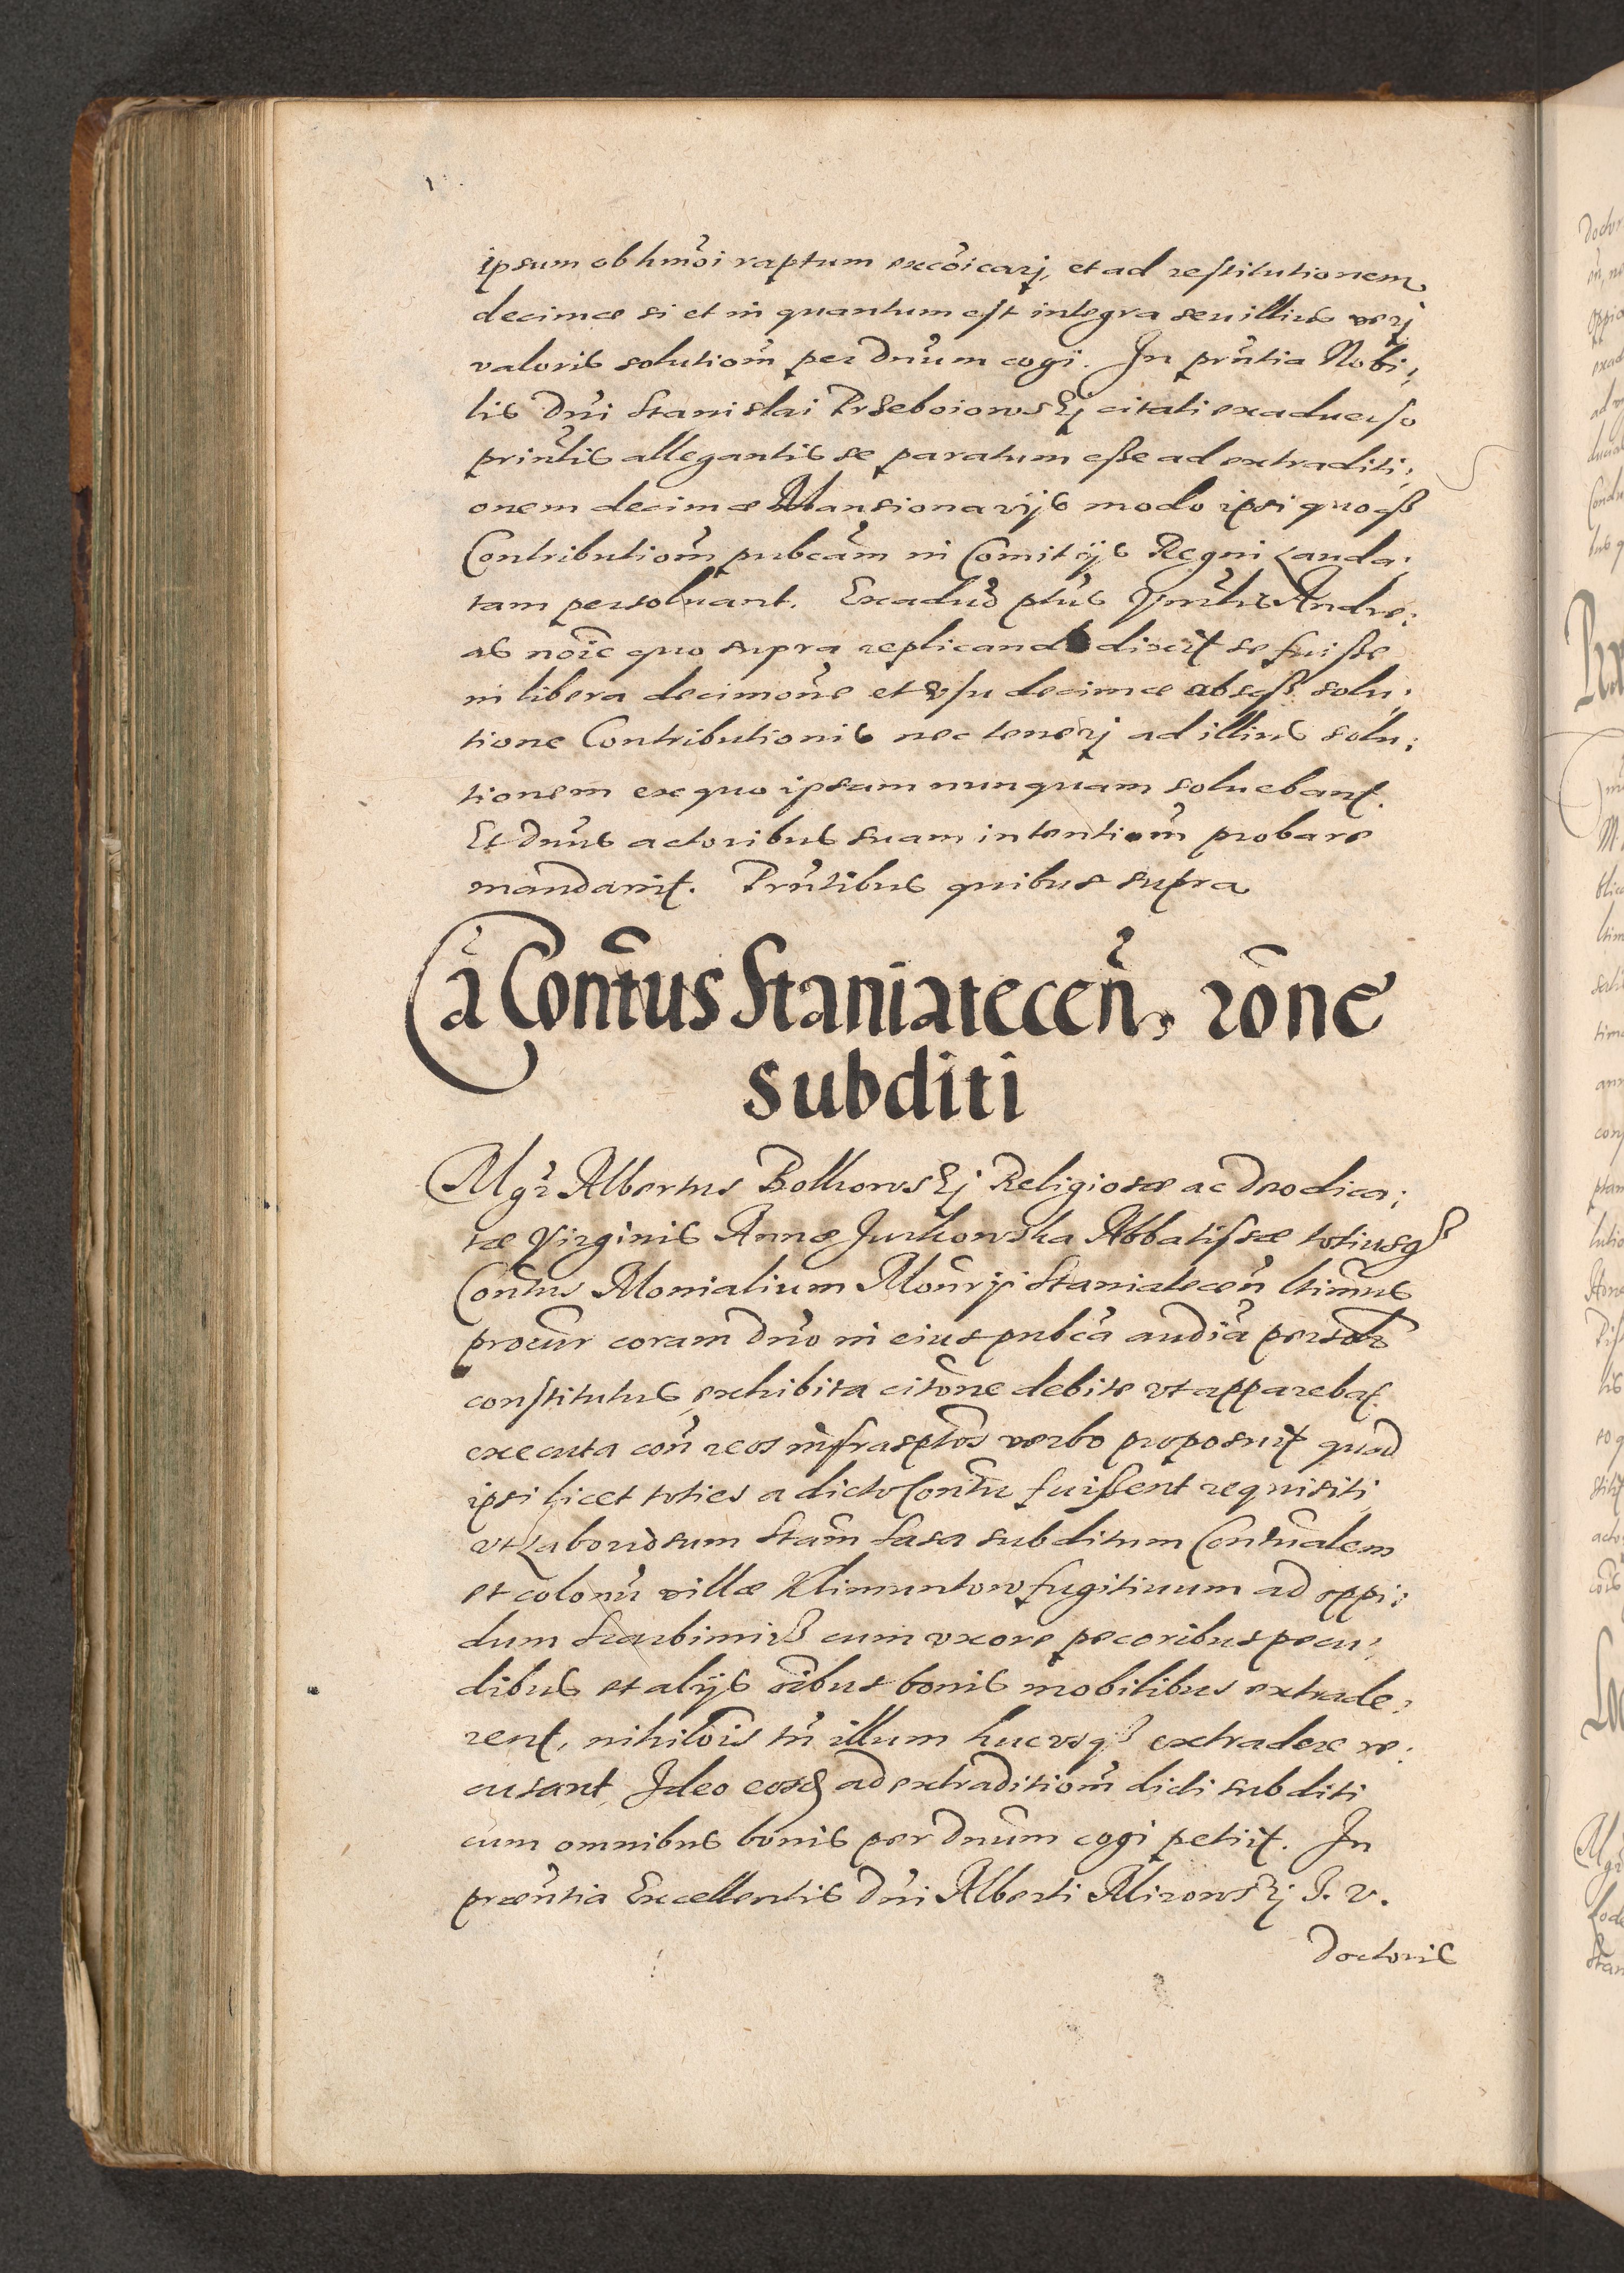 ipsum ob hmõi raptum excõicarj, et ad restitutionem
decimæ si et in quantum est integra seu illius verj
valoris solutiom̃ per Dnũm cogi. In prñtia Nobi,
lis Dñi Stanislai Przeboiowskj citati ex aduerso
prinłis allegantis se paratum esse ad extraditi,
onem decimæ Mansionarijs modo ipsi quoqз
Contributiom̃ pubcãm in Comitijs Regni Lauda,
tam persoluant. Ex aduõ ptus Vnrlis Andre,
as noĩe quo supra replicando dixit se fuisse
in libera decimõne et vsu decimæ absqз solu,
tione Contributionis nec tenerj ad illius solu,
tionem ex quo ipsam nunquam soluebant.
Et Dnũs actoribus suam intentiom̃ probare
mandauit. Prñtibus quibus supra
Cã Conũtus Staniatecen, rõne
subditi
Mgr Albertus Bolkowskj Religiosæ ac Deo dica,
tæ Virginis Annæ Jurkowska Abbatissæ totiusqз
Conũtus Monialium Monrij Staniatecen ltimus
procur coram Dno in eius pubcã audiã personalr
constitutus, exhibita citõne debite vt apparebat
executa con reos infrasptos verbo proposuit quod
ipsi licet toties a dicto Conũtu fuissent requisiti
vt Laboriosum Stam Sasa subditum Conũtualem
et colonũ villæ Klimuntow fugitiuum ad oppi,
dum Skarbimirз cum vxore pecoribus pecu,
dibus et alijs oĩbus bonis mobilibus extrade,
rent, nihilois tñ illum hucvsqз extradere re,
cusant, Ideo eosd ad extraditiom̃ dicti subditi
cum omnibus bonis per Dnũm cogi petijt. In
præñtia Excellentis Dñi Alberti Mirowskj I. V.
Doctoris